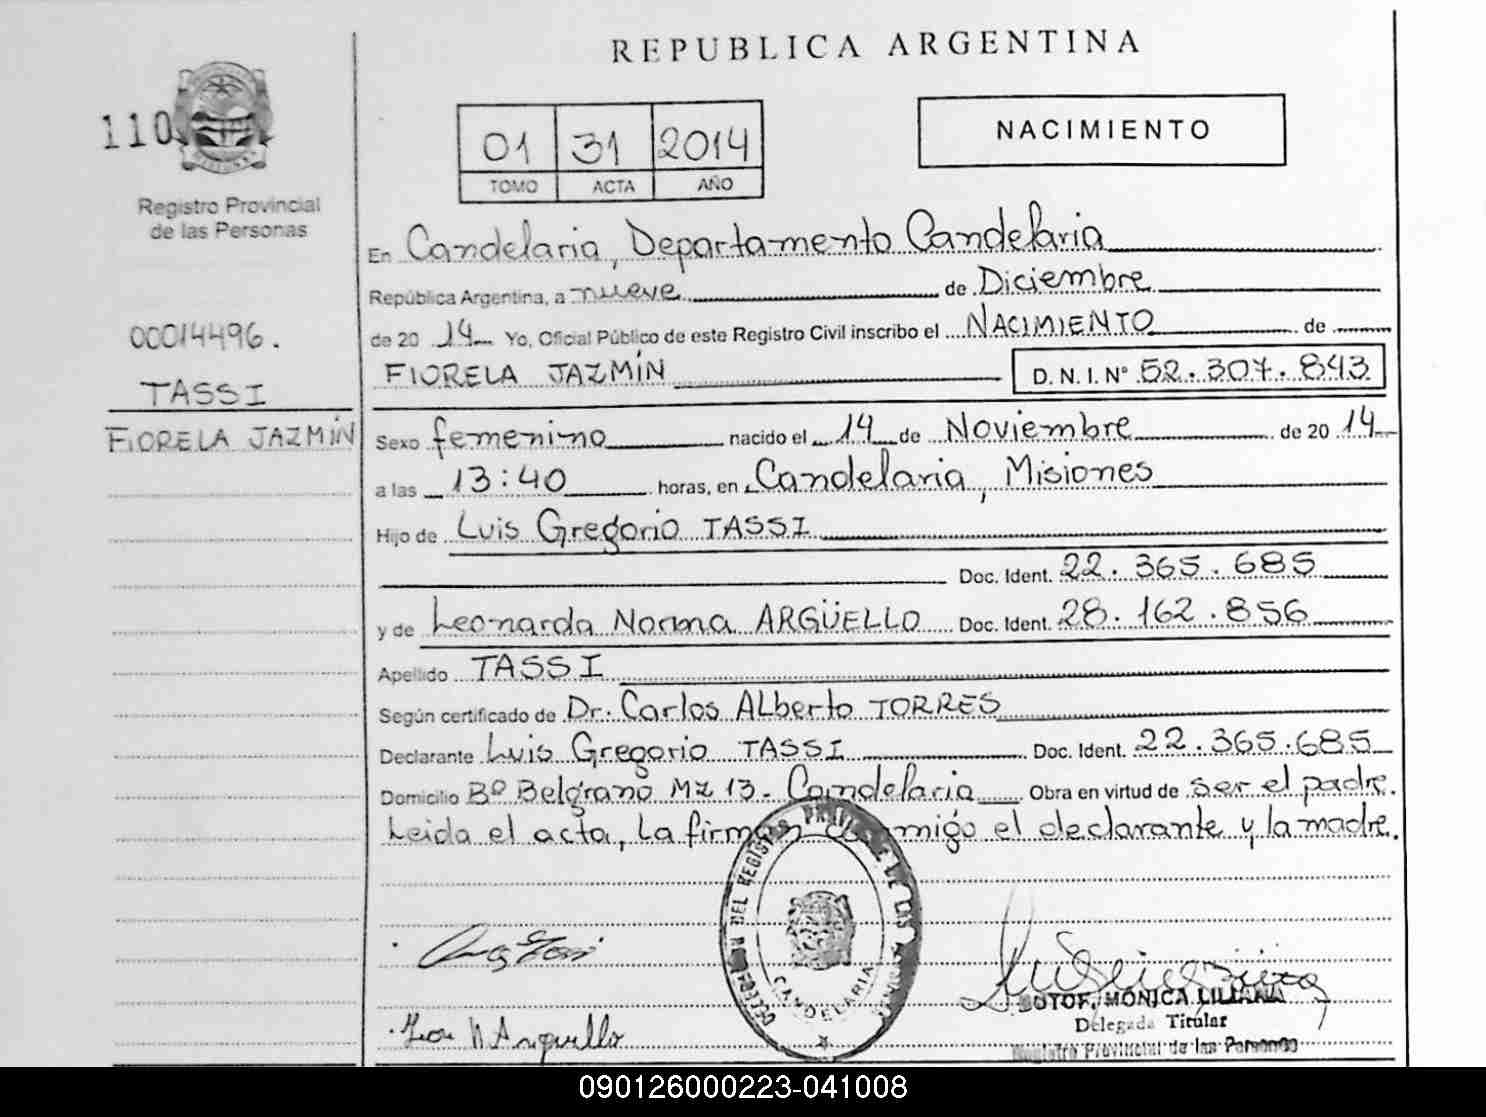 REPUBLICA ARGENTINA
110
Registro Provincial
de las Personas
01 31 2014
TOMO ACTA AÑO
NACIMIENTO
00014496.
TASSI
FIORELA JAZMÍN
En Candelaria, Departamento Candelaria
República Argentina, a nueve de Diciembre
de 20 14 Yo, Oficial Público de este Registro Civil inscribo el NACIMIENTO de
FIORELA JAZMÍN D. N. I. Nº 52.307.843
Sexo femenino nacido el 14 de Noviembre de 20 14
a las 13:40 horas, en Candelaria, Misiones
Hijo de Luis Gregorio TASSI
Doc. Ident. 22.365.685
y de Leonarda Norma ARGÜELLO Doc. Ident. 28.162.856
Apellido TASSI
Según certificado de Dr. Carlos Alberto TORRES
Declarante Luis Gregorio TASSI Doc. Ident. 22.365.685
Domicilio Bº Belgrano Mz 13- Candelaria Obra en virtud de ser el padre.
Leida el acta, la firman conmigo el declarante y la madre.
CANDELARIA
Arguello
MÓNICA LILIANA
Delegada Titular
Registro Provincial de las Personas
090126000223-041008